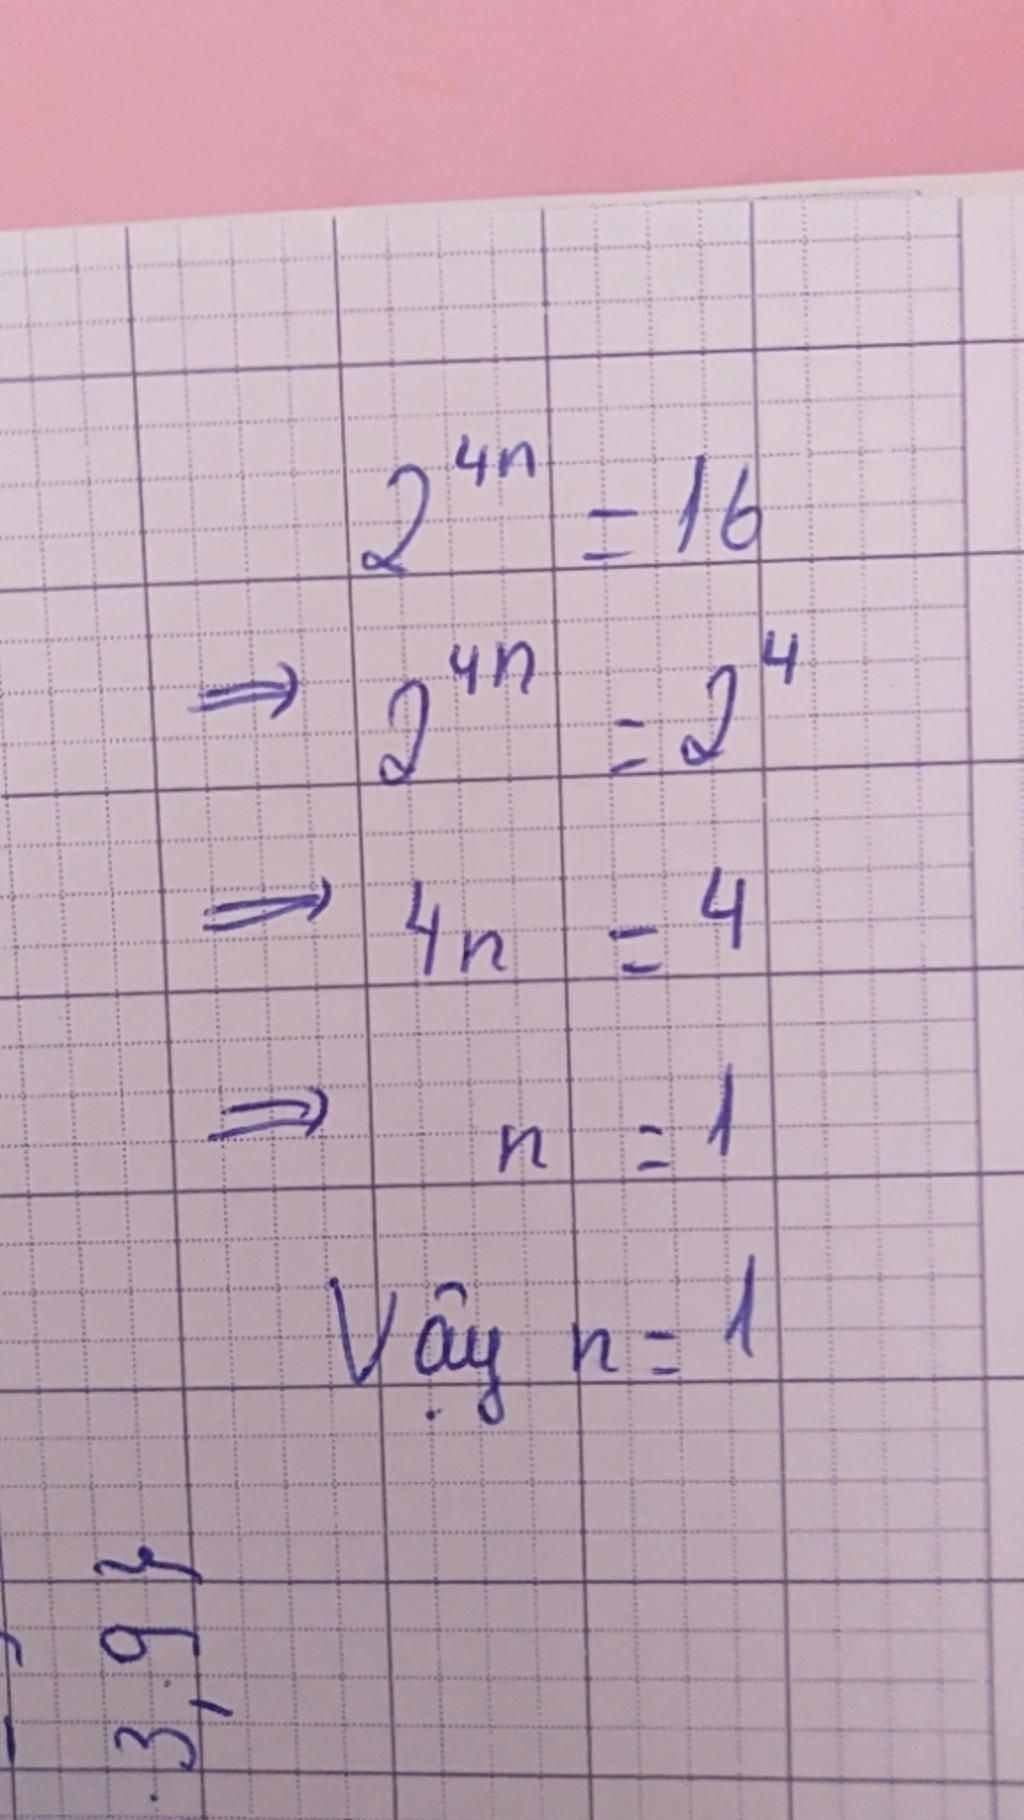 2^{4n} = 16
⇒ 2^{4n} = 2^4
⇒ 4n = 4
⇒ n = 1
Vậy n = 1